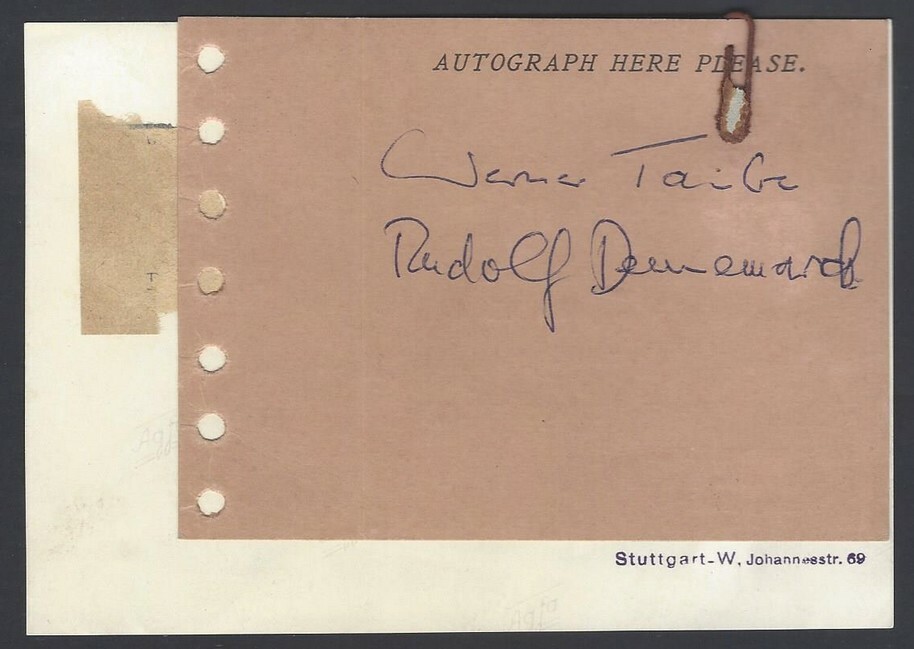 AUTOGRAPH HERE PLEASE.
Werner Taube
Rudolf
Stuttgart-W, Johannesstr. 69